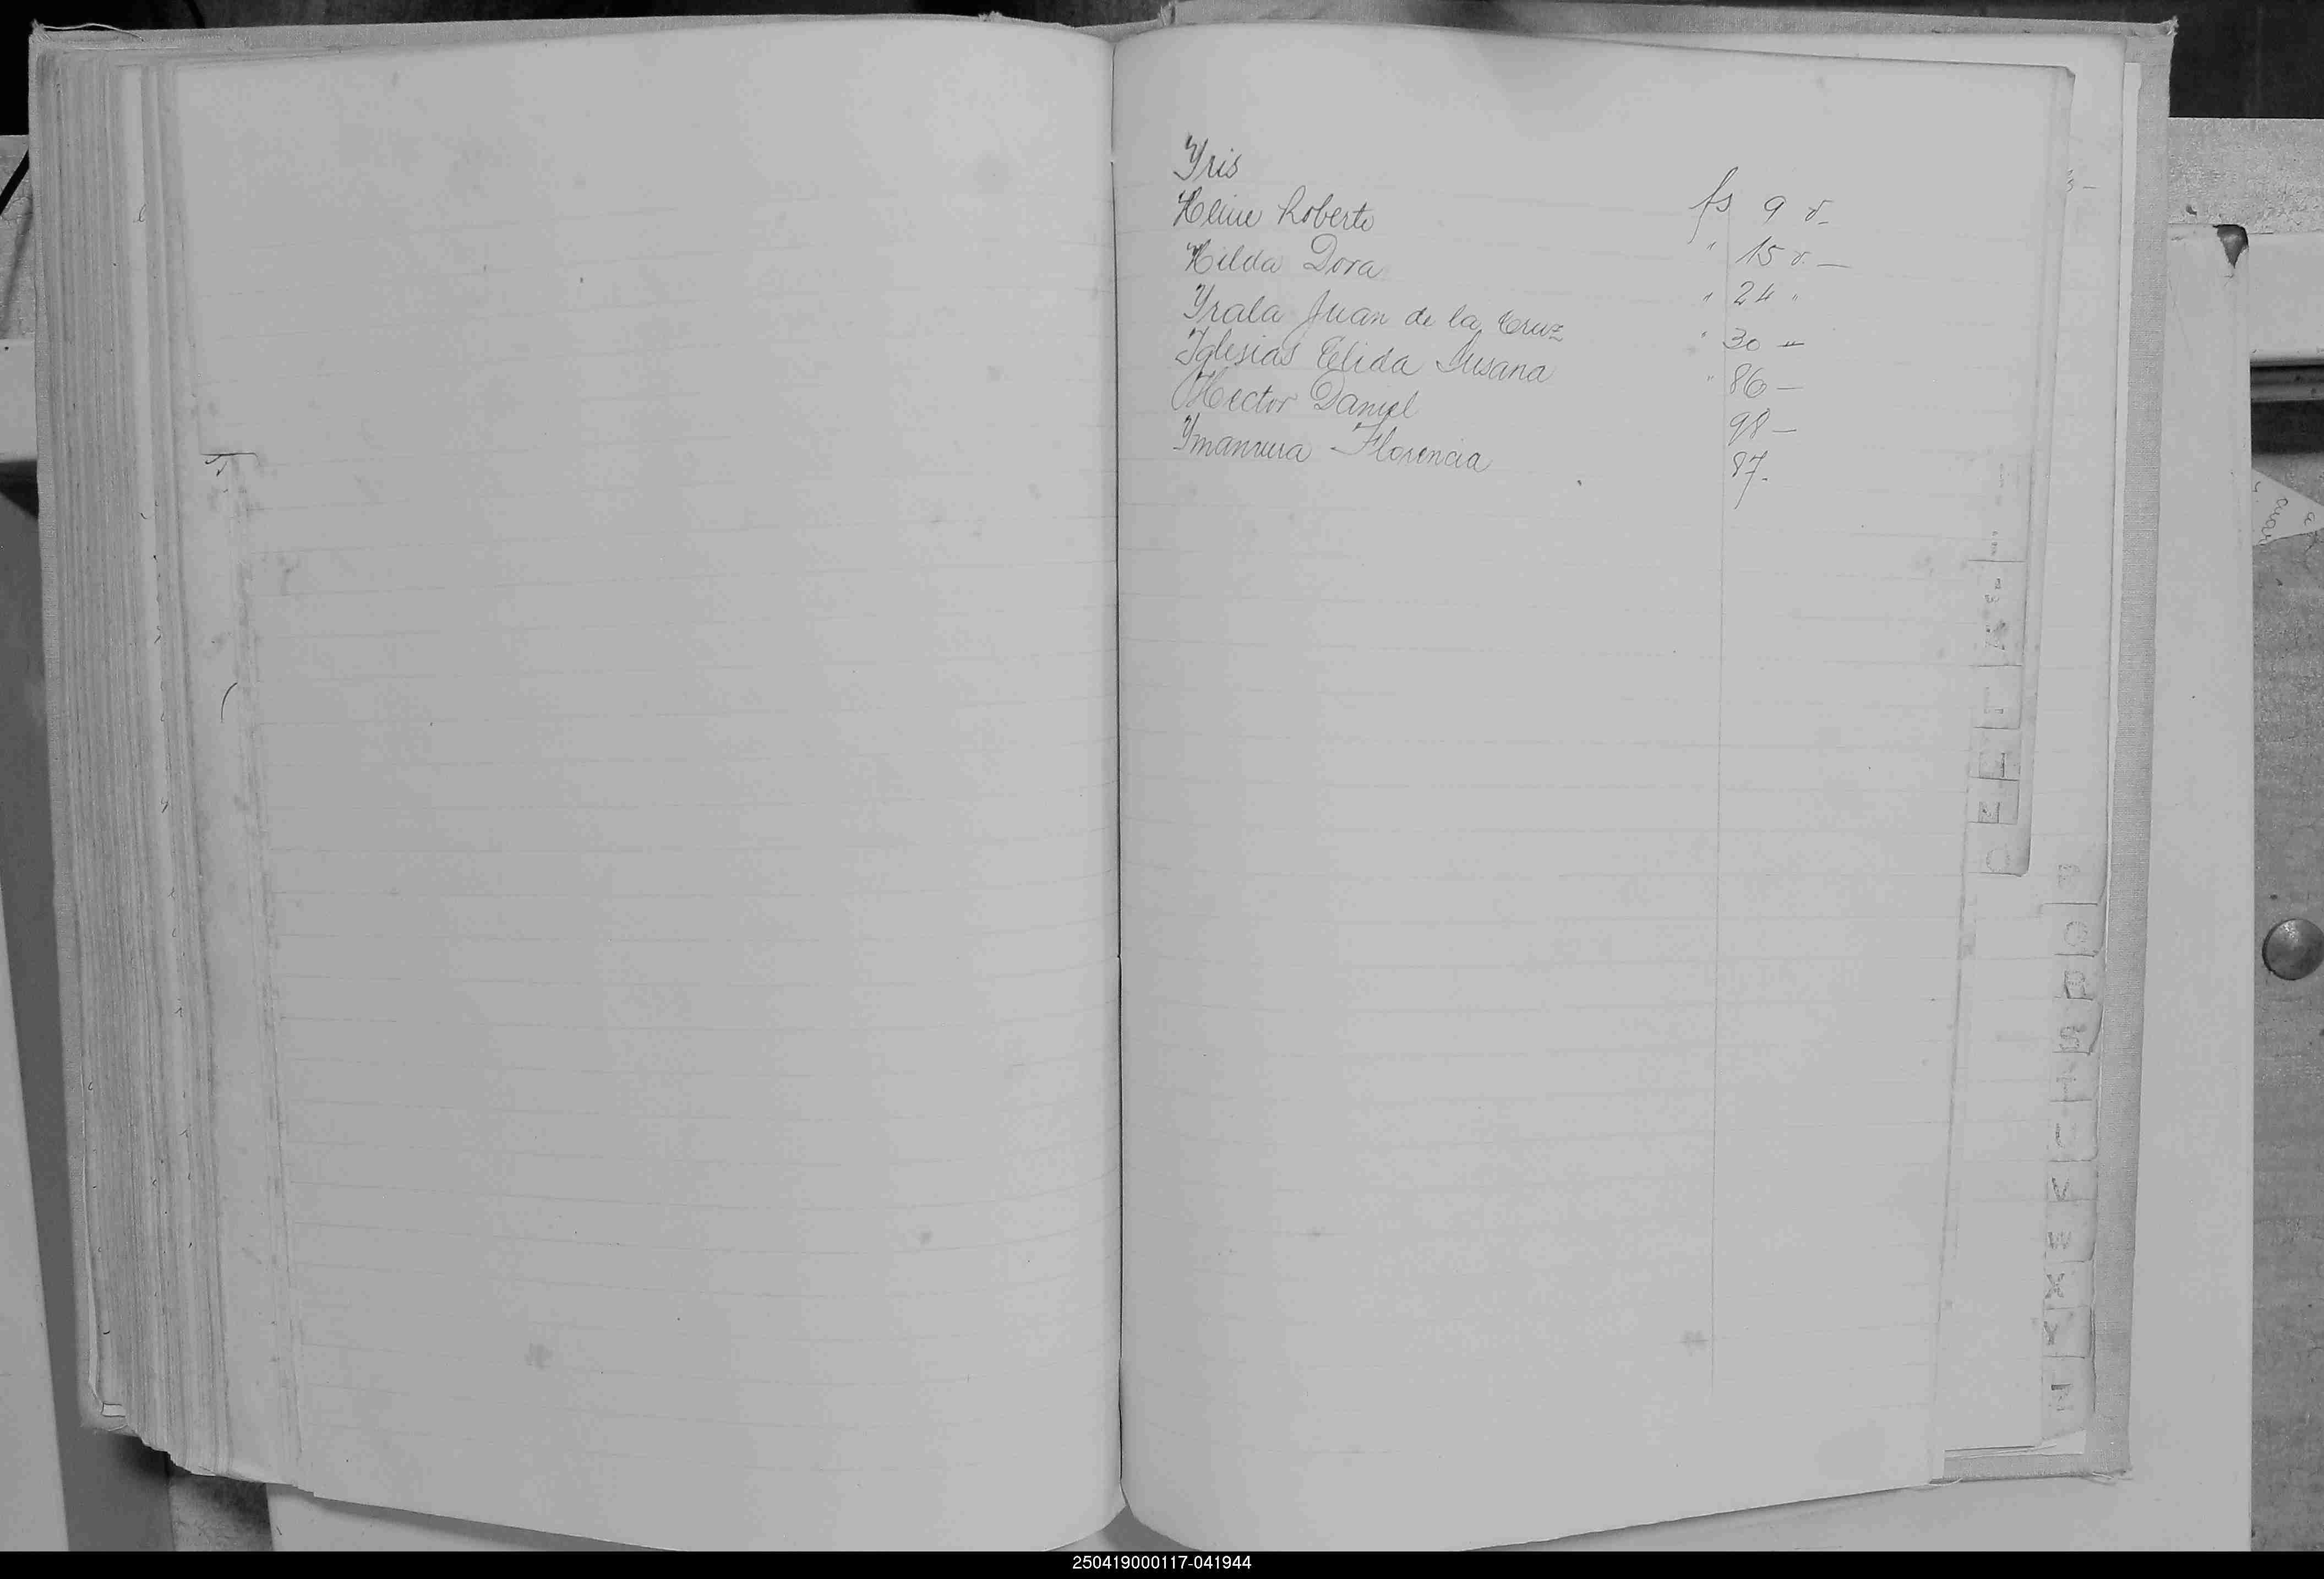 Yris fs 9 v.
Heine Roberto " 15 v. —
Hilda Dora " 24 "
Yrala Juan de la Cruz " 30 "
Iglesias Elida Susana " 86 —
Hector Daniel 98 —
Florencia 87.
Z
O
P
Q
R
S
T
V
X
Y
Z
250419000117-041944